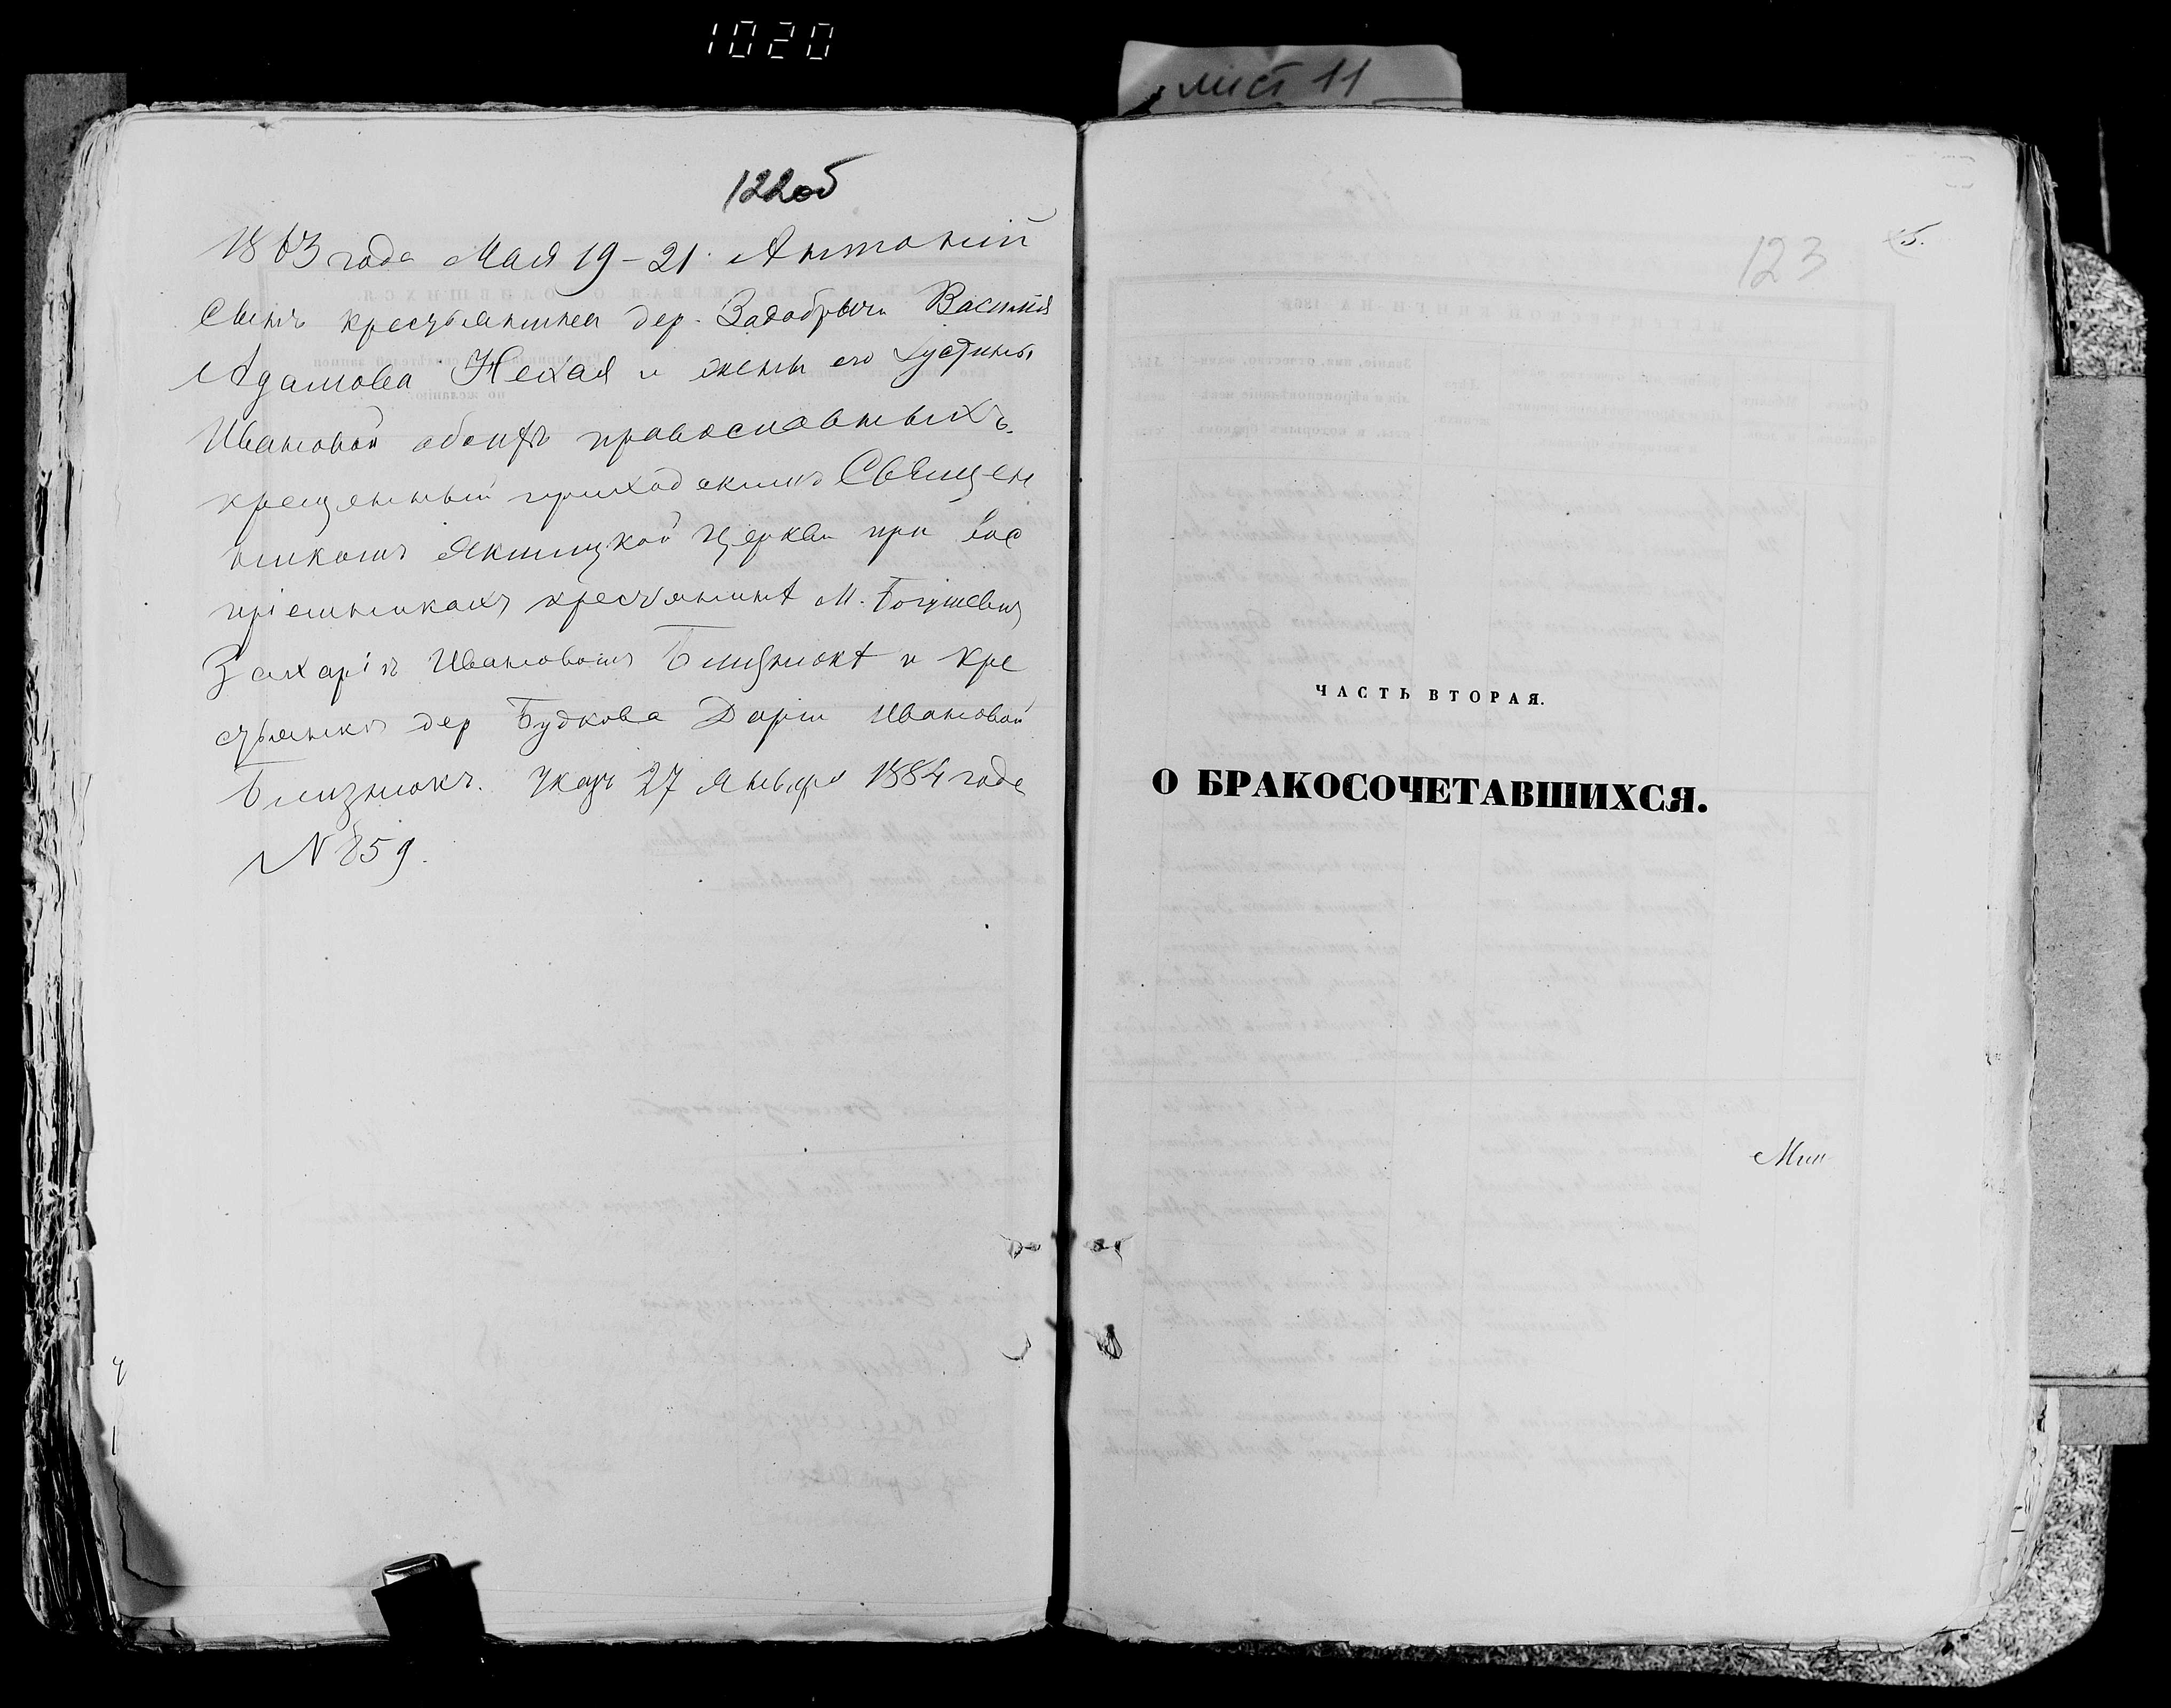 1020
лист 11
122об
1863 года Мая 19-21. Антоній
сынъ крестьянина дер. Задобрычи Василія
Адамова Нехая и жены его Устины
Ивановой обоихъ православныхъ.
крещенный приходскимъ Священ
никомъ Якшицкой Церкви при вос
пріемникахъ крестьянинѣ М. Богушевичъ
Захаріѣ Ивановомъ Близнюкѣ и кре
стьянкѣ дер Будкова Даріи Ивановой
Близнюкъ. Указъ 27 Января 1884 года
№ 859.
123
5.
ЧАСТЬ ВТОРАЯ.
О БРАКОСОЧЕТАВШИХСЯ.
Мин